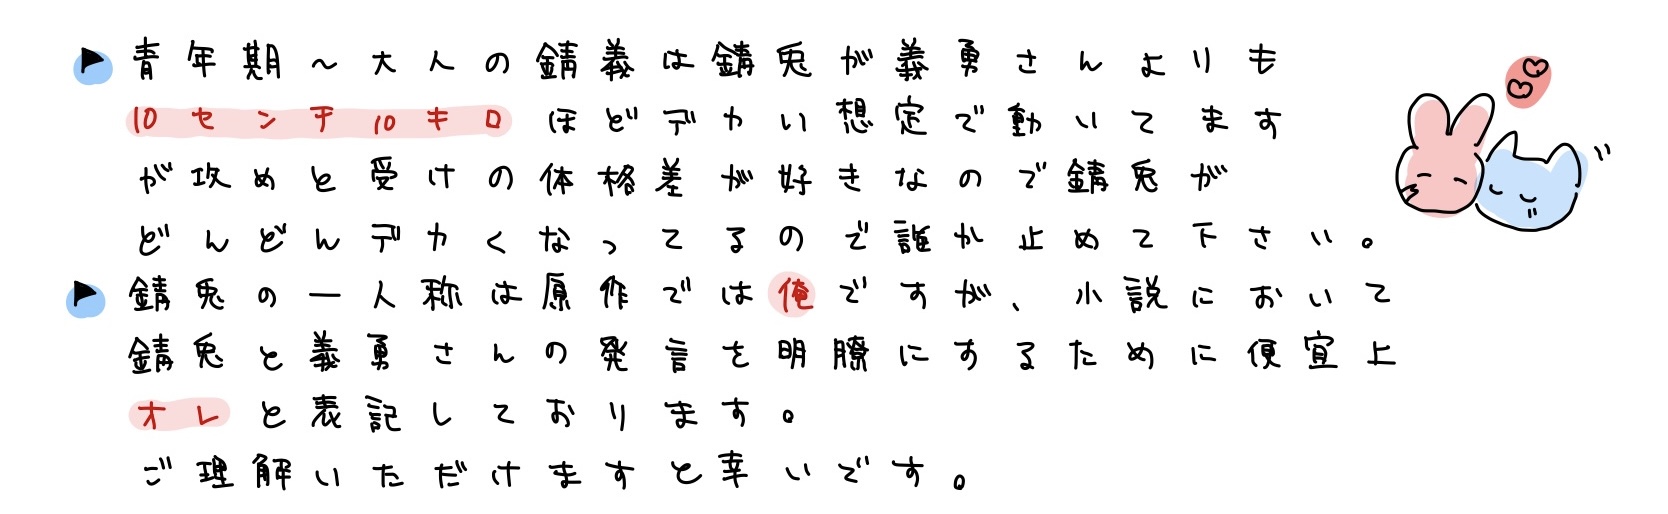 青年期～大人の錆義は錆兎が義勇さんよりも
10センチ10キロほどデカい想定で動いてます
が攻めと受けの体格差が好きなので錆兎が
どんどんデカくなってるので誰か止めて下さい。
錆兎の一人称は原作では俺ですが、小説において
錆兎と義勇さんの発言を明瞭にするために便宜上
オレと表記しております。
ご理解いただけますと幸いです。